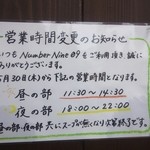 営業時間変更のお知らせ
いつも Number Nine 09をご利用頂き、誠に
ありがとうございます。
5月30日(木)から下記の営業時間となります。
昼の部 11:30~14:30
夜の部 18:00~22:00
昼の部・夜の部 共にスープが無くなり次第終了です。